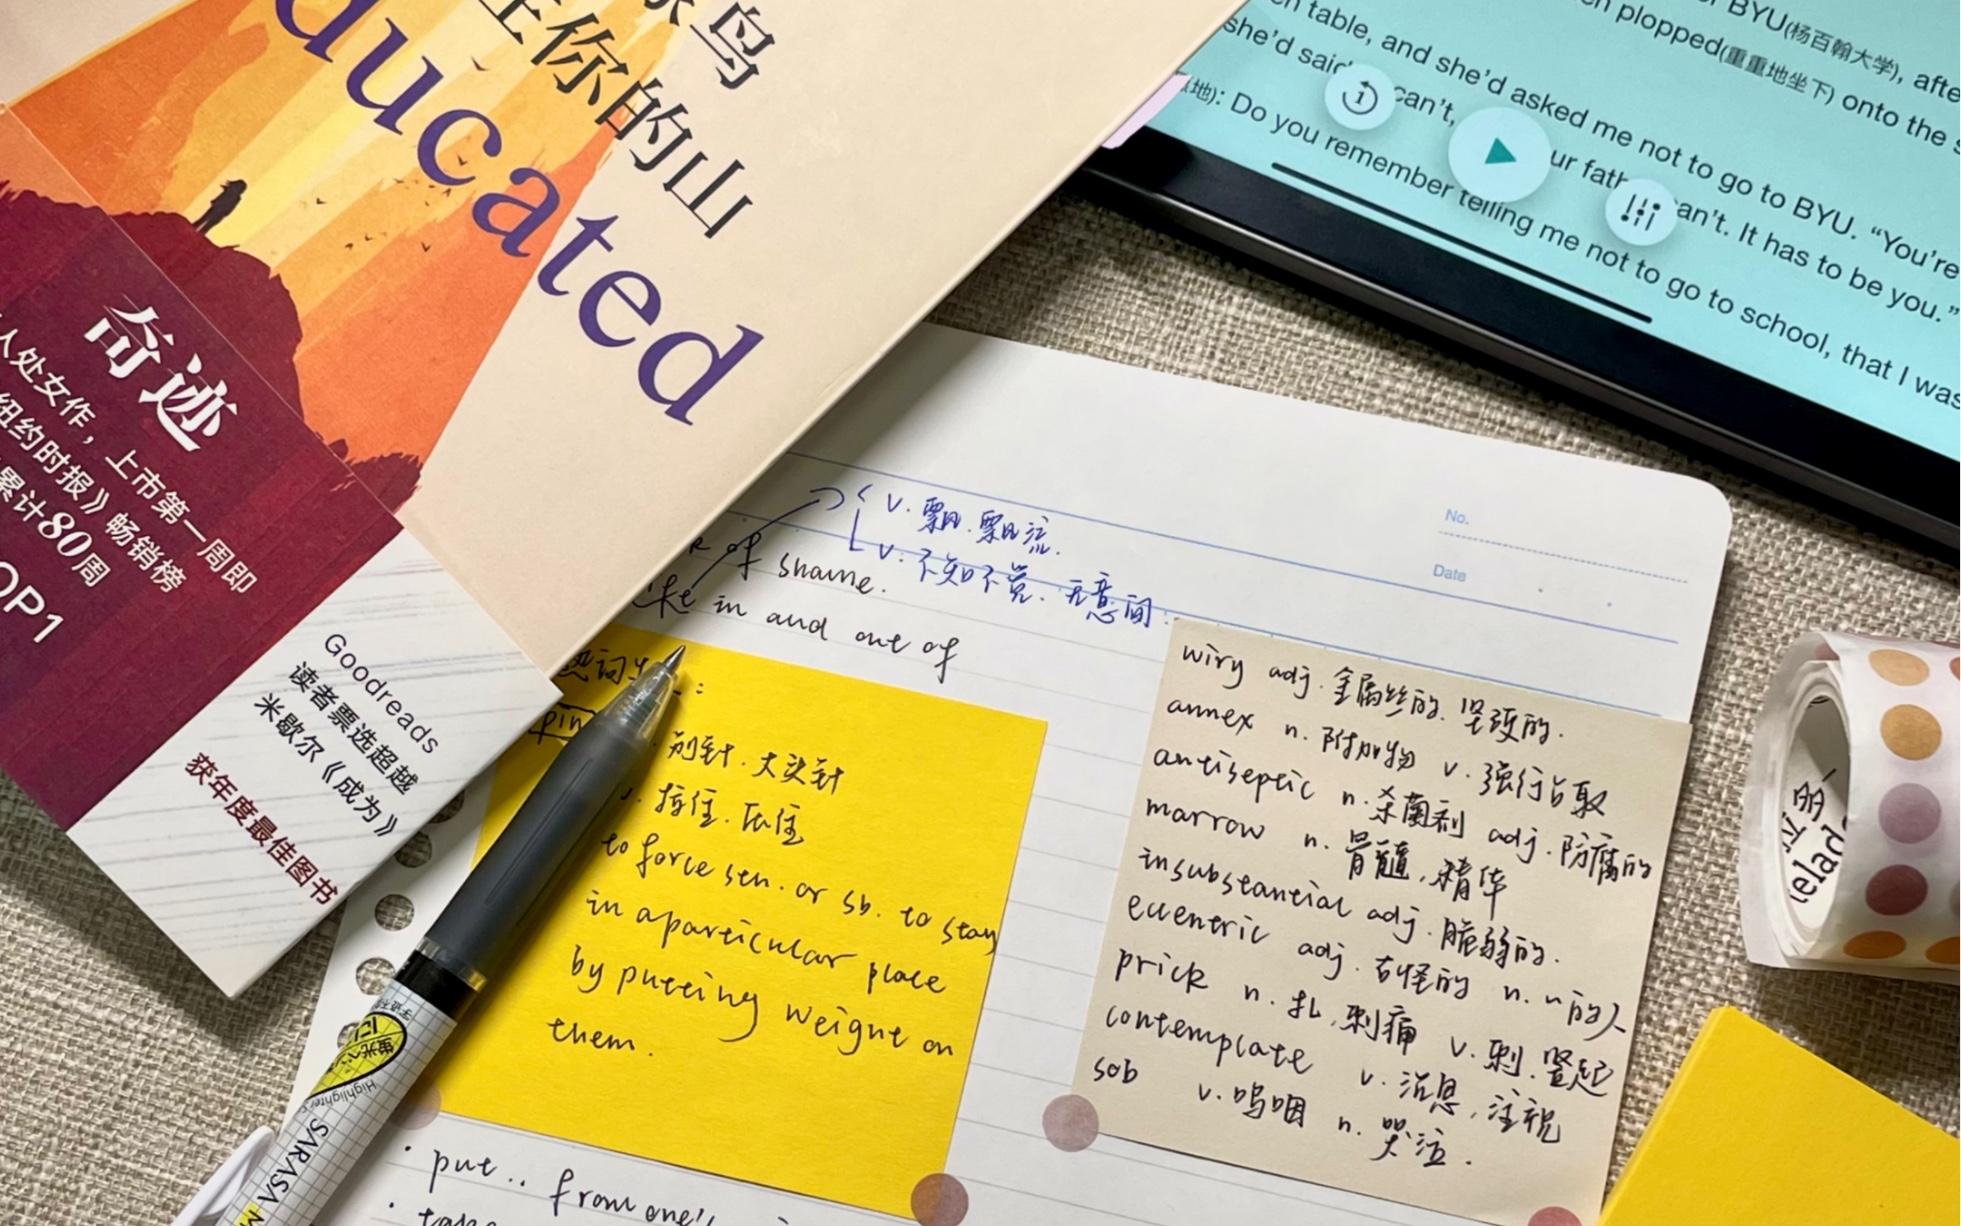 鸟
你的山
ducated
奇迹
人处女作，上市第一周即
纽约时报》畅销榜
累计80周
OP1
Goodreads
读者票选超越
米歇尔《成为》
获年度最佳图书
BYU(杨百翰大学), afte
plopped(重重地坐下) onto the
table, and she'd asked me not to go to BYU. "You're
she'd said can't, ur fath an't. It has to be you."
地): Do you remember telling me not to go to school, that I was
No.
Date
v. 飘. 飘流.
v. 不知不觉. 无意间.
of shame.
in and out of
热词
pin
别针. 大头针
v. 按住. 压住
to force sth. or sb. to stay
in a particular place
by putting weight on
them.
put.. from one's
take
wiry adj. 金属丝的. 坚硬的.
annex n. 附加物 v. 强行占取
antiseptic n. 杀菌剂 adj. 防腐的
marrow n. 骨髓, 精华
insubstantial adj. 脆弱的.
eccentric adj. 古怪的 n. ~的人
prick n. 扎, 刺痛 v. 刺. 竖起
contemplate v. 沉思, 注视
sob v. 呜咽 n. 哭泣.
Highlighter
SARASA